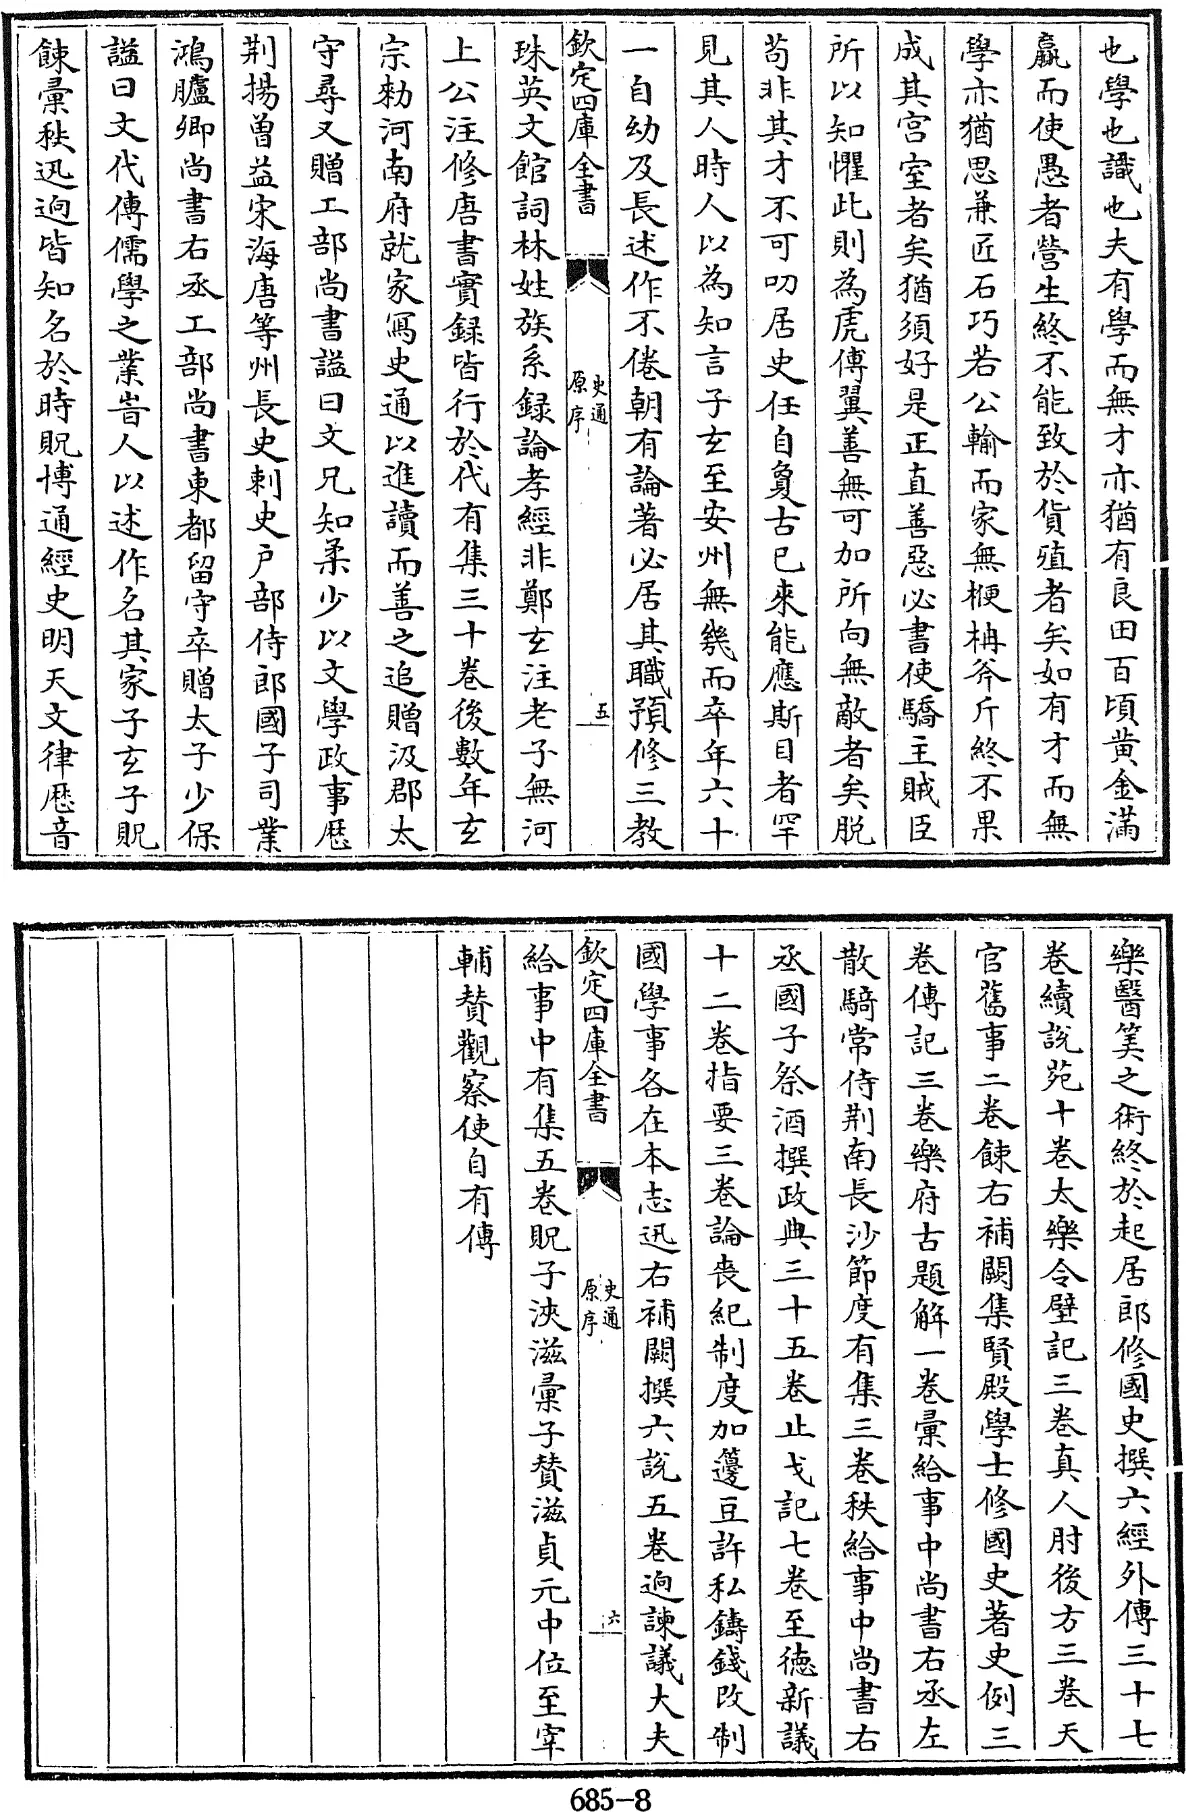 也學也識也夫有學而無才亦猶有良田百頃黄金滿
籯而使愚者營生終不能致於貨殖者矣如有才而無
學亦猶思兼匠石巧若公輸而家無楩柟斧斤終不果
成其宫室者矣猶須好是正直善惡必書使驕主賊臣
所以知懼此則為虎傅翼善無可加所向無敵者矣脱
茍非其才不可叨居史任自夐古已來能應斯目者罕
見其人時人以為知言子玄至安州無幾而卒年六十
一自幼及長述作不倦朝有論著必居其職預修三教
欽定四庫全書
史通
原序
五
珠英文館詞林姓族系録論孝經非鄭玄注老子無河
上公注修唐書實録皆行於代有集三十卷後數年玄
宗勅河南府就家寫史通以進讀而善之追贈汲郡太
守尋又贈工部尚書諡曰文兄知柔少以文學政事歴
荆揚曾益宋海唐等州長史刺史户部侍郎國子司業
鴻臚卿尚書右丞工部尚書東都留守卒贈太子少保
諡曰文代傳儒學之業旹人以述作名其家子玄子貺
餗彚秩迅迥皆知名於時貺博通經史明天文律厯音
樂醫筭之術終於起居郎修國史撰六經外傳三十七
卷續說苑十卷太樂令壁記三卷真人肘後方三卷天
官舊事二卷餗右補闕集賢殿學士修國史著史例三
卷傳記三卷樂府古題解一卷彚給事中尚書右丞左
散騎常侍荆南長沙節度有集三卷秩給事中尚書右
丞國子祭酒撰政典三十五卷止戈記七卷至徳新議
十二卷指要三卷論喪紀制度加籩豆許私鑄錢改制
國學事各在本志迅右補闕撰六說五卷迥諫議大夫
欽定四庫全書
史通
原序
六
給事中有集五卷貺子浹滋彚子贊滋貞元中位至宰
輔贊觀察使自有傳
685-8